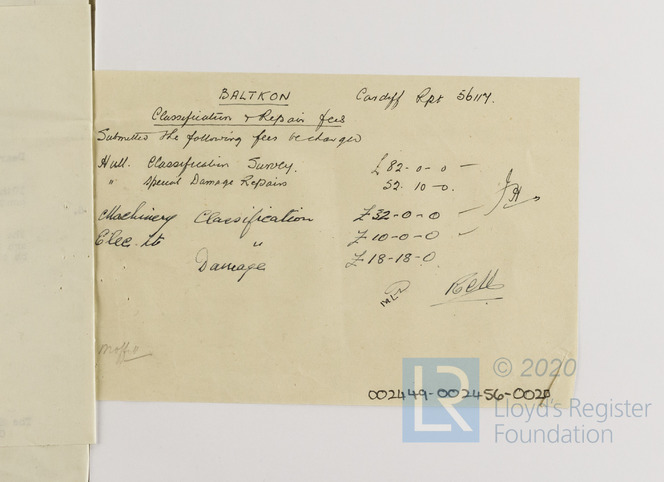 BALTKON Cardiff Rpt 56117.
Classification & Repair fees
Submitted the following fees be charged
Hull. Classification Survey. £82-0-0 -
" Special Damage Repairs 52. 10-0.
Machinery Classification £32-0-0 -
Elec. Lt " £10-0-0 -
Damage £18-18-0
002449-002456-002
LR
© 2020
Lloyd's Register
Foundation